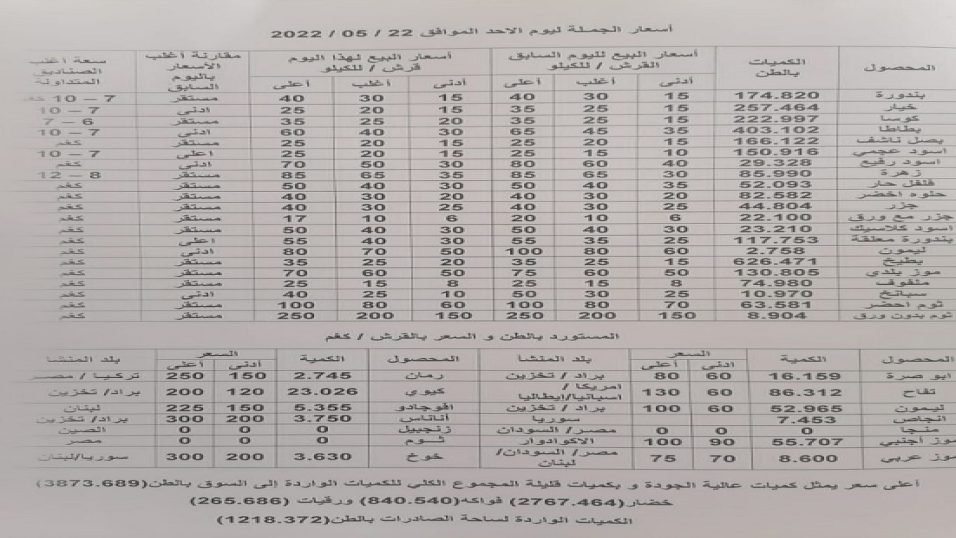 أسعار الجملة ليوم الاحد الموافق 22 / 05 / 2022
المحصول الكميات بالطن أسعار البيع لليوم السابق القرش / للكيلو أسعار البيع لهذا اليوم قرش / للكيلو مقارنة أغلب الأسعار باليوم السابق سعة أغلب الصناديق المتداولة
أدنى أغلب أعلى أدنى أغلب أعلى
بندورة 174.820 15 30 40 15 30 40 مستقر 7 – 10
خيار 257.464 15 25 35 15 20 25 ادنى 7 – 10
كوسا 222.997 15 25 35 20 25 35 مستقر 6 – 7
بطاطا 403.102 35 45 65 30 40 60 ادنى 7 – 10
بصل ناشف 166.122 15 20 25 15 20 25 مستقر كغم
اسود عجمي 150.916 10 15 25 15 20 25 اعلى 7 – 10
اسود رفيع 29.328 40 60 80 30 50 70 ادنى كغم
زهرة 85.990 30 65 85 35 65 85 مستقر 8 – 12
فلفل حار 52.093 35 40 50 30 40 50 مستقر كغم
حلوه اخضر 82.582 20 30 40 20 30 40 مستقر كغم
جزر 44.804 25 30 40 25 30 40 مستقر كغم
جزر مع ورق 22.100 6 10 20 6 10 17 مستقر كغم
اسود كلاسيك 23.210 30 40 50 30 40 50 مستقر كغم
بندورة معلقة 117.753 25 35 55 30 40 55 اعلى كغم
ليمون 2.758 60 80 100 50 70 80 ادنى كغم
بطيخ 626.471 15 25 35 20 25 35 مستقر كغم
موز بلدي 130.805 50 60 75 50 60 70 مستقر كغم
ملفوف 74.980 8 15 25 8 15 25 مستقر كغم
سبانخ 10.970 25 30 50 10 25 40 ادنى كغم
ثوم اخضر 63.581 70 80 100 60 80 100 مستقر كغم
ثوم بدون ورق 8.904 150 200 250 150 200 250 مستقر كغم
المستورد بالطن و السعر بالقرش / كغم
المحصول الكمية السعر بلد المنشا المحصول الكمية السعر بلد المنشا
ادنى أعلى أدنى أعلى
ابو صرة 16.159 60 80 براد / تخزين رمان 2.745 150 250 تركيا / مصر
تفاح 86.312 60 130 امريكا / اسبانيا/إيطاليا كيوي 23.026 120 200 براد/ تخزين
ليمون 52.965 60 100 براد / تخزين افوجادو 5.355 150 225 لبنان
انجاص 7.453 سوريا أناناس 3.750 200 300 براد/ تخزين
منجا 0 0 0 مصر / السودان زنجبيل 0 0 0 الصين
موز أجنبي 55.707 90 100 الاكوادوار ثوم 0 0 0 مصر
موز عربي 8.600 70 75 مصر / السودان/ لبنان خوخ 3.630 200 300 سوريا/لبنان
أعلى سعر يمثل كميات عالية الجودة و بكميات قليلة المجموع الكلي للكميات الواردة إلى السوق بالطن(3873.689)
خضار(2767.464) فواكه(840.540) ورقيات (265.686)
الكميات الواردة لساحة الصادرات بالطن(1218.372)